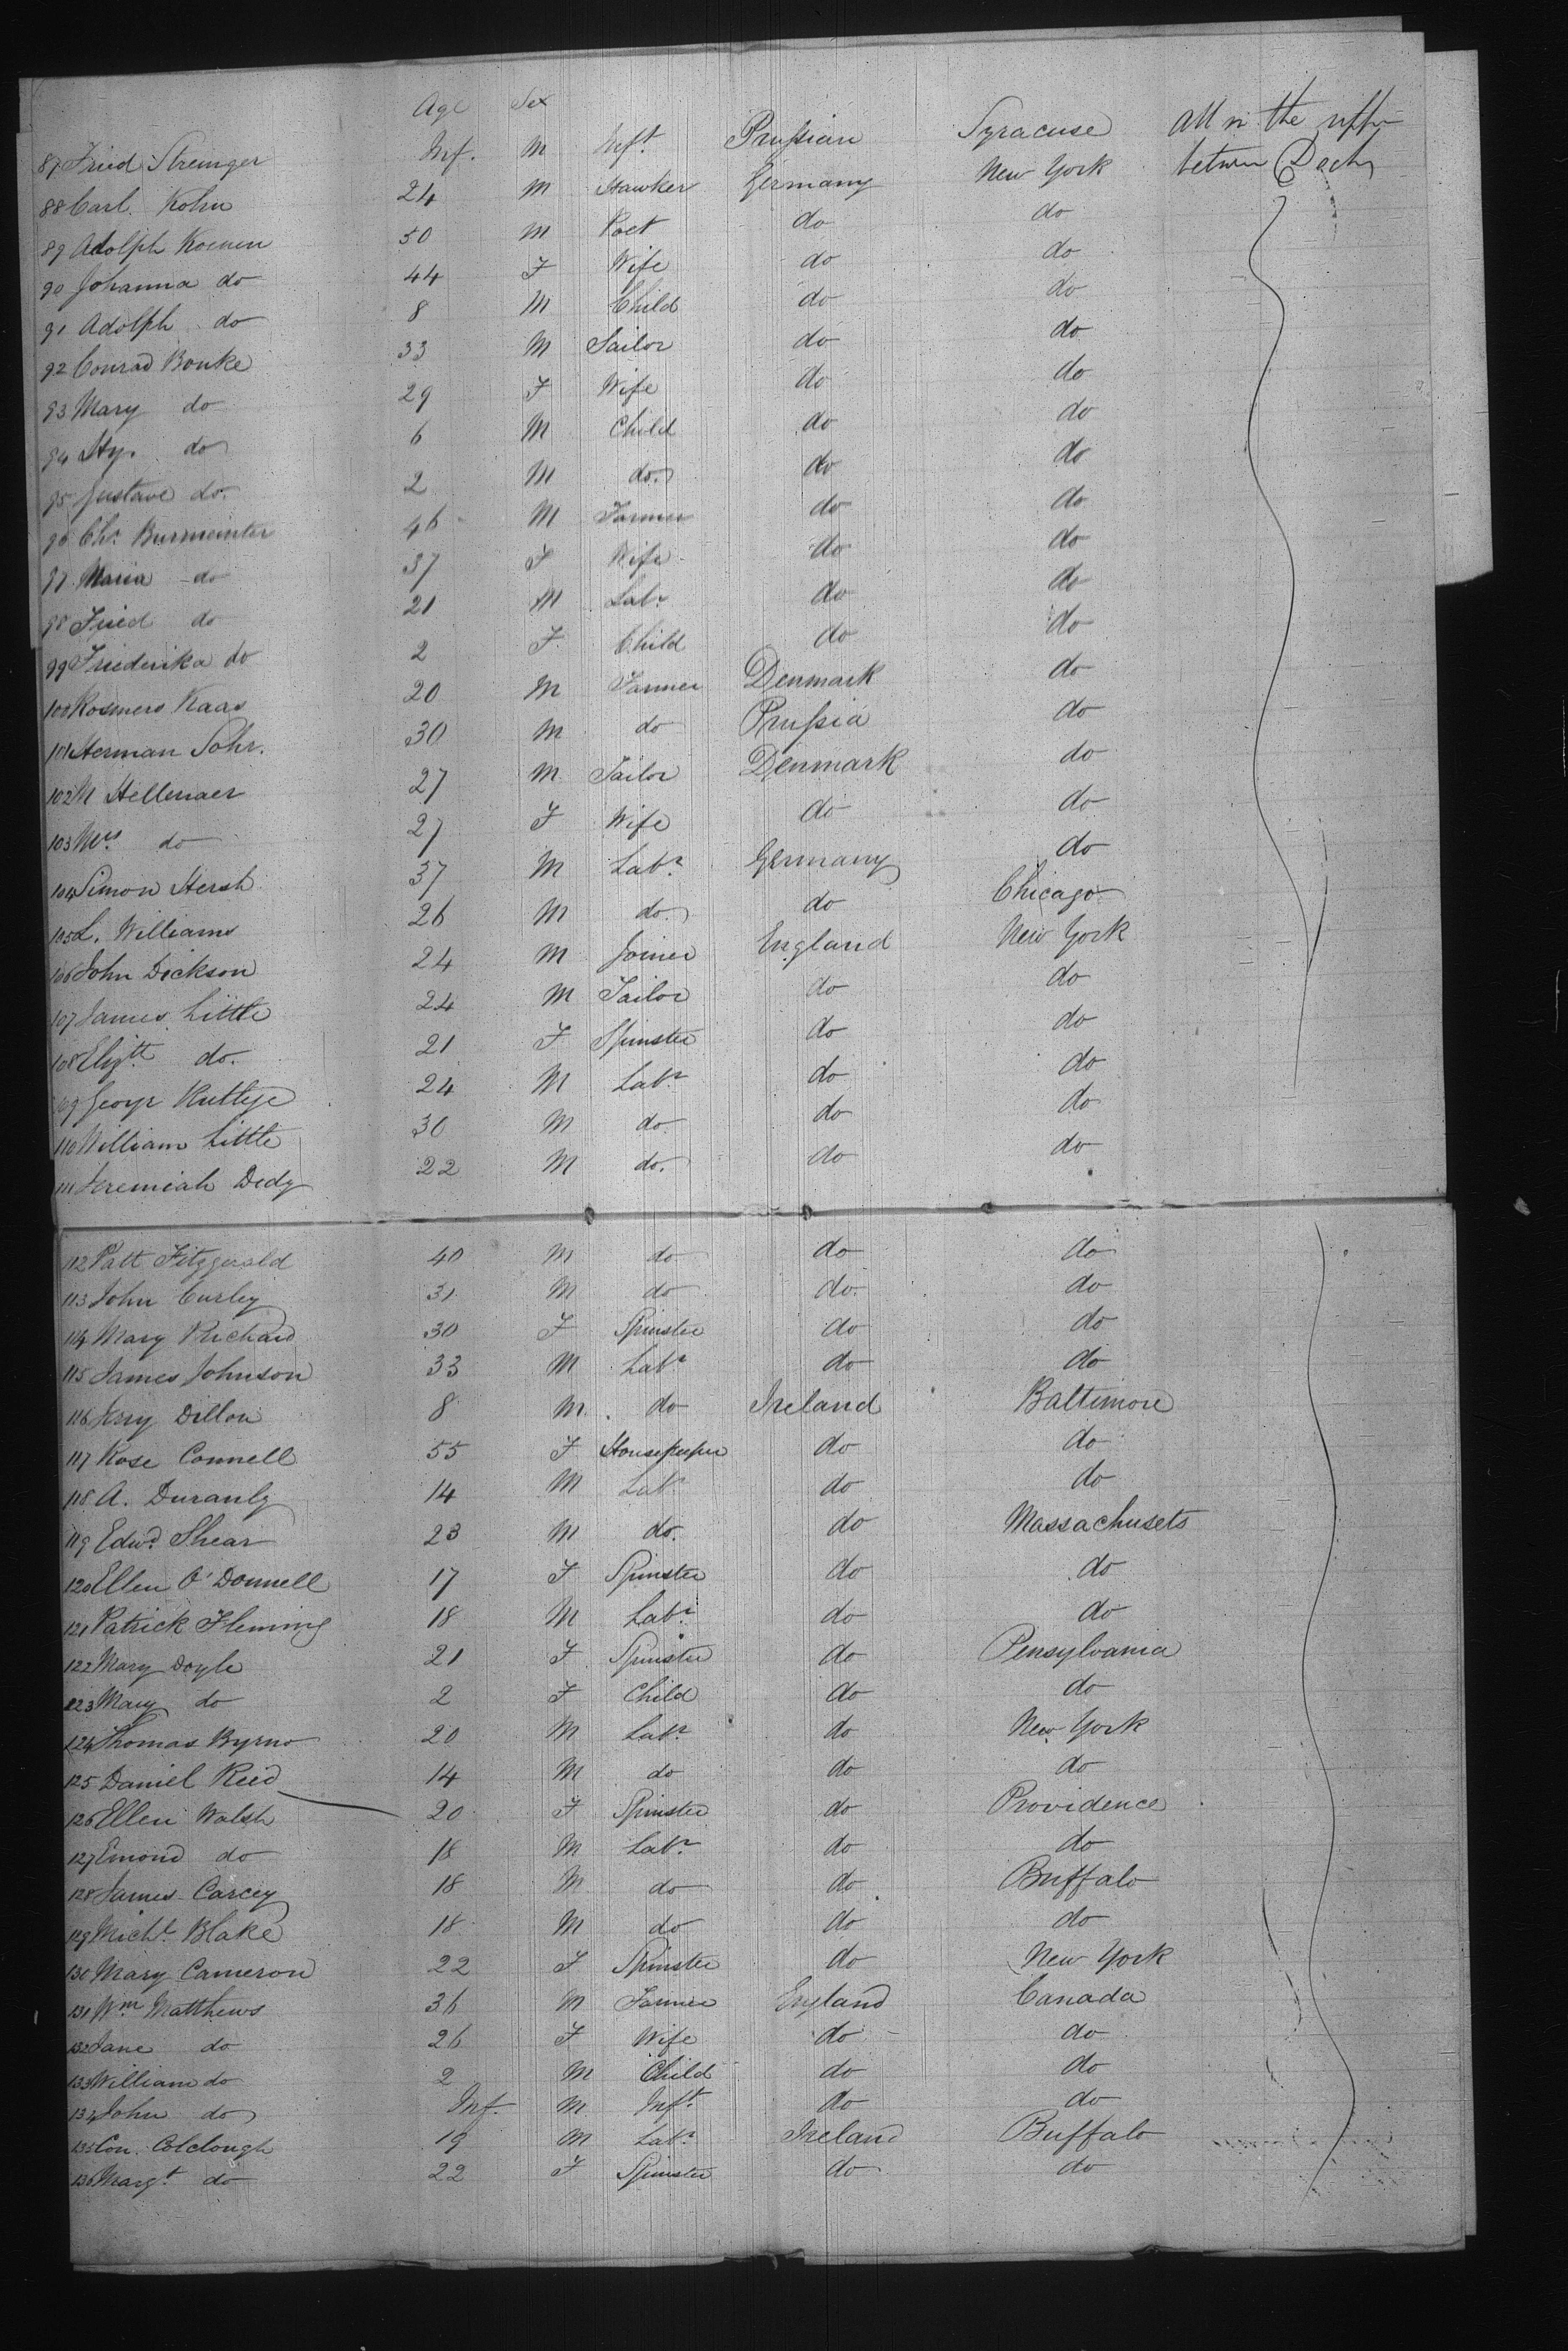 Age Sex
87 Fried Streinger Inf. M Inft. Prussian Syracuse All in the upper
88 Carl Kohn 24 M Hawker Germany New York between Decks
89 Adolph Koenen 50 M Poet do do
90 Johanna do 44 F Wife do do
91 Adolph do 8 M Child do do
92 Conrad Bonke 33 M Sailor do do
93 Mary do 29 F Wife do do
94 Hy. do 6 M Child do do
95 Gustave do. 2 M do. do do
96 Chs. Burmeinter 46 M Farmer do do
97 Maria do 37 F Wife do do
98 Fried do 21 M Labr. do do
99 Friederika do 2 F. Child do do
100 Rosmers Kaas 20 M Farmer Denmark do
101 Herman Sohr. 30 M do Prussia do
102 M Hellenaer 27 M Tailor Denmark do
103 Mrs. do 27 F Wife do do
104 Simon Hersh 37 M Labr. Germany do
105 L. Williams 26 M do. do Chicago
106 John Dickson 24 M Joiner England New York
107 James Little 24 M Tailor do do
108 Elizth do. 21 F Spinster do do
109 George Ruttye 24 M Labr. do do
110 William Little 30 M do. do do
111 Jeremiah Dedy 22 M do. do do
112 Patt Fitzgerald 40 M do do do
113 John Curley 31 M do do. do
114 Mary Richard 30 F Spinster do do
115 James Johnson 33 M Labr do do
116 Jerry Dillon 8 M. do Ireland Baltimore
117 Rose Connell 55 F Housekeeper do do
118 A. Duranly 14 M Labr. do do
119 Edwd. Shear 23 M do. do Massachusets
120 Ellen O'Donnell 17 F Spinster do do
121 Patrick Fleming 18 M Labr. do do
122 Mary Doyle 21 F Spinster do Pensylvania
123 Mary do 2 F Child do do
124 Thomas Byrne 20 M Labr. do New York
125 Daniel Reed 14 M do do do
126 Ellen Walsh 20 F Spinster do Providence
127 Emond do 18 M Labr. do do
128 James Carcey 18 M do do Buffalo
129 Michl. Blake 18 M do do do
130 Mary Cameron 22 F Spinster do New York
131 Wm Matthews 36 M Farmer England Canada
132 Jane do 26 F Wife do do
133 William do 2 M Child do do
134 John do Inf. M Inft. do do
135 Con. Colclough 19 M Labr. Ireland Buffalo
136 Margt. do 22 F Spinster do do